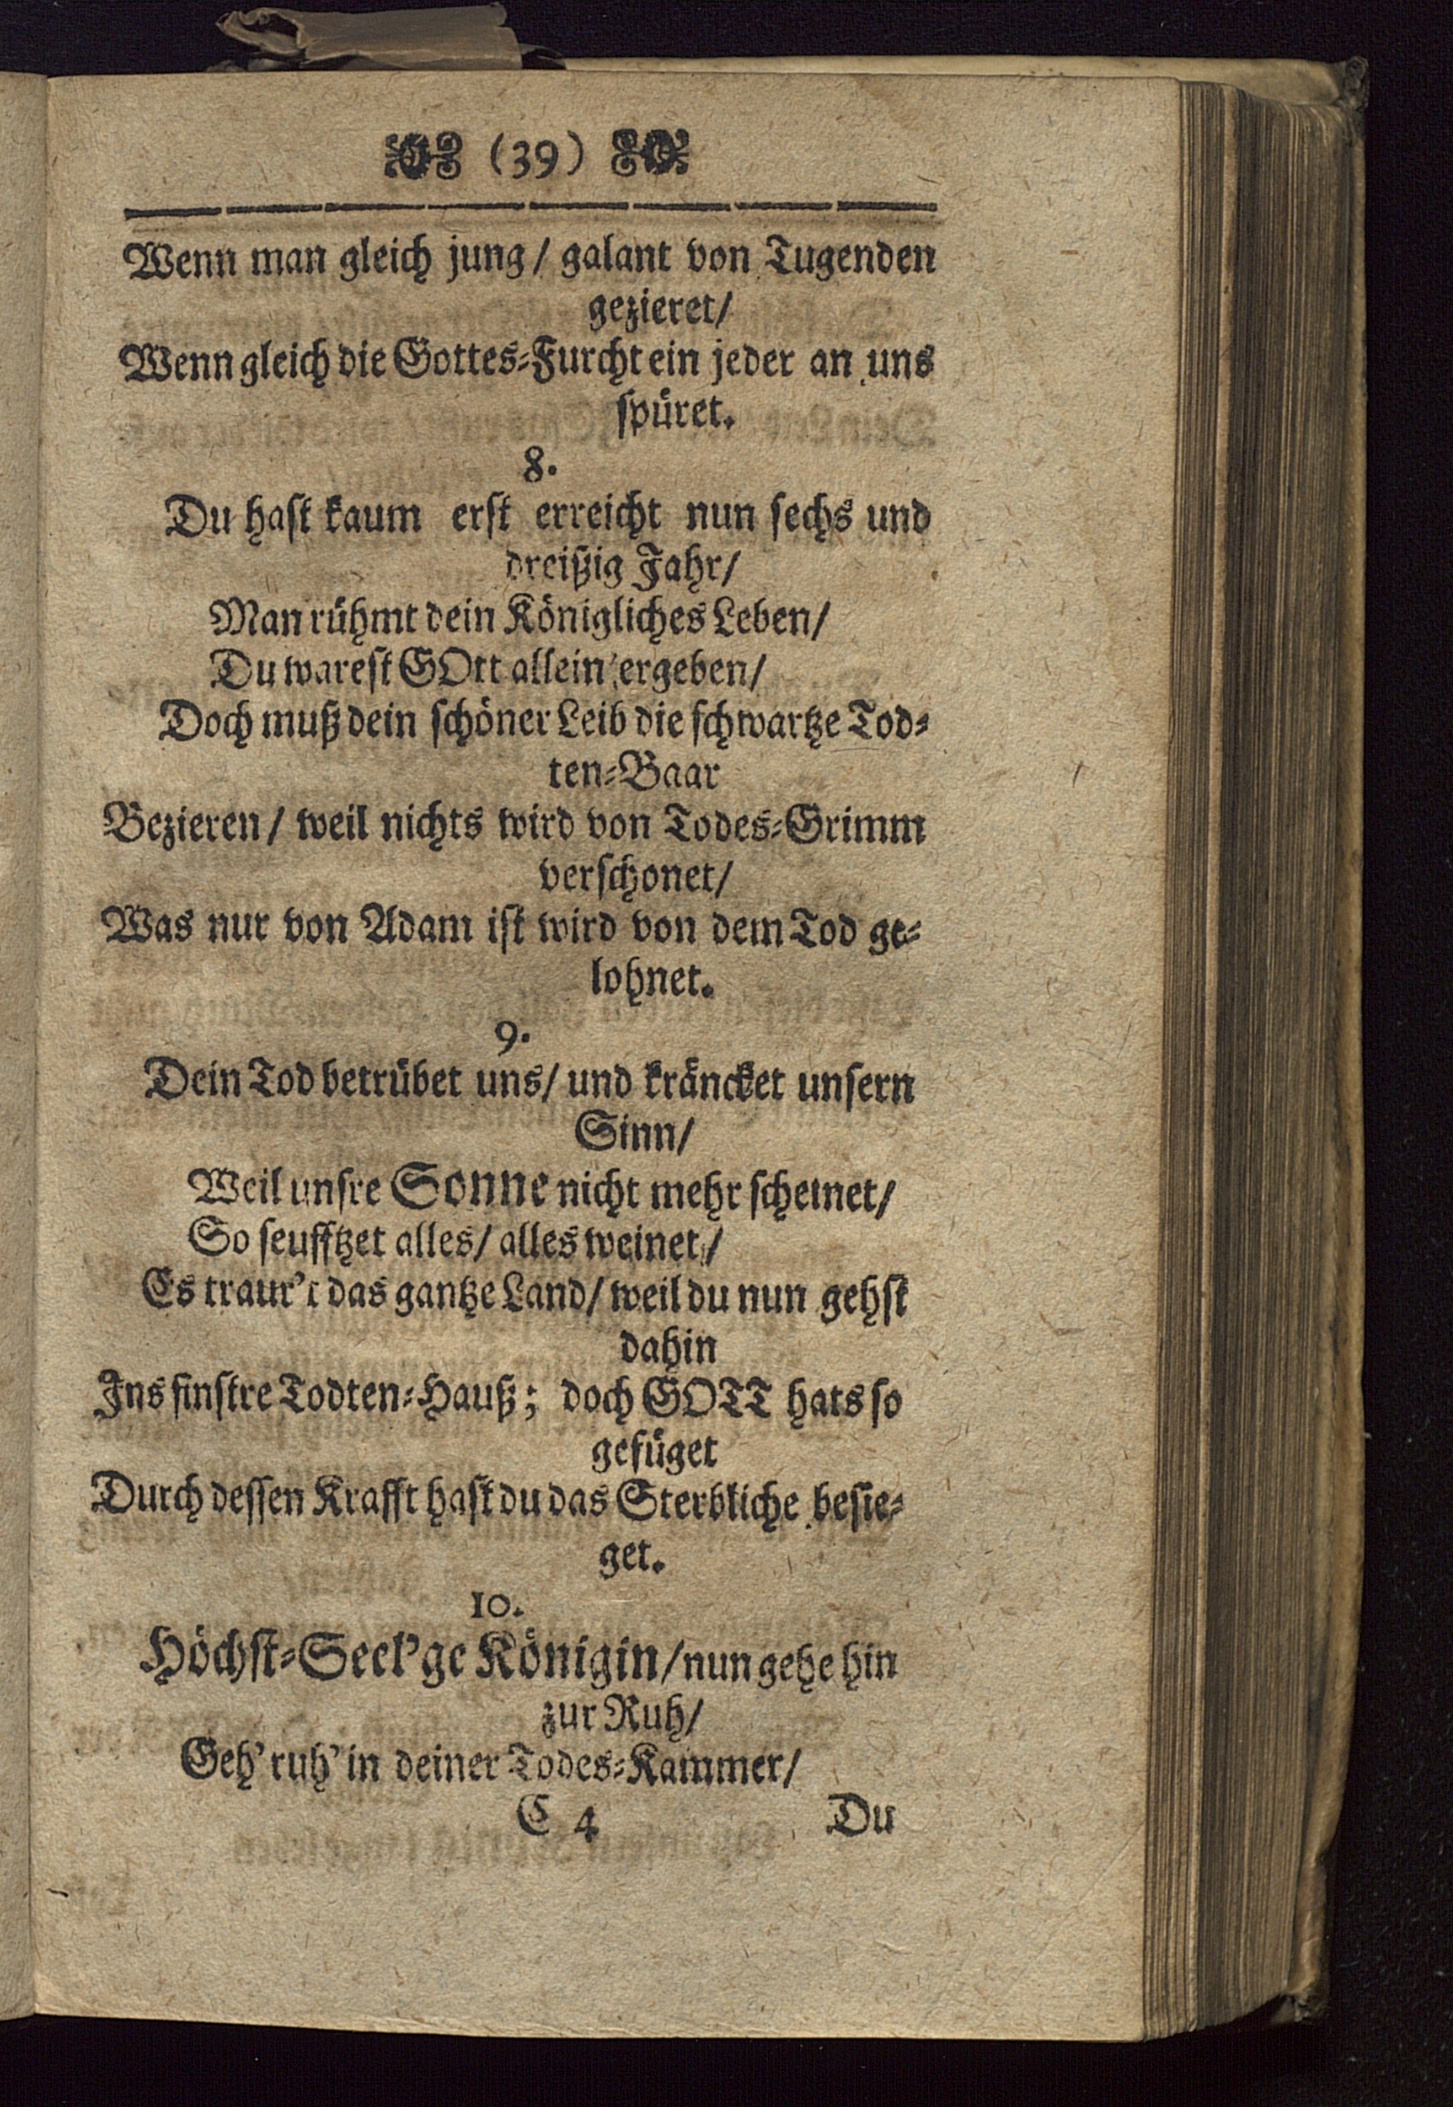 (39)
Wenn man gleich jung/ galant von Tugenden
gezieret/
Wenn gleich die Gottes-Furcht ein jeder an uns
spüret.
8.
Du hast kaum erst erreicht nun sechs und
dreißig Jahr/
Man rühmt dein Königliches Leben/
Du warest GOtt allein ergeben/
Doch muß dein schöner Leib die schwartze Tod-
ten-Baar
Bezieren/ weil nichts wird von Todes-Grimm
verschonet/
Was nur von Adam ist wird von dem Tod ge-
lohnet.
9.
Dein Tod betrübet uns/ und kräncket unsern
Sinn/
Weil unsre Sonne nicht mehr scheinet/
So seufftzet alles/ alles weinet/
Es traur't das gantze Land/ weil du nun gehst
dahin
Ins finstre Todten-Hauß; doch GOTT hats so
gefüget
Durch dessen Krafft hast du das Sterbliche besie-
get.
10.
Höchst-Seel'ge Königin/ nun gehe hin
zur Ruh/
Geh' ruh' in deiner Todes-Kammer/
C 4 Du